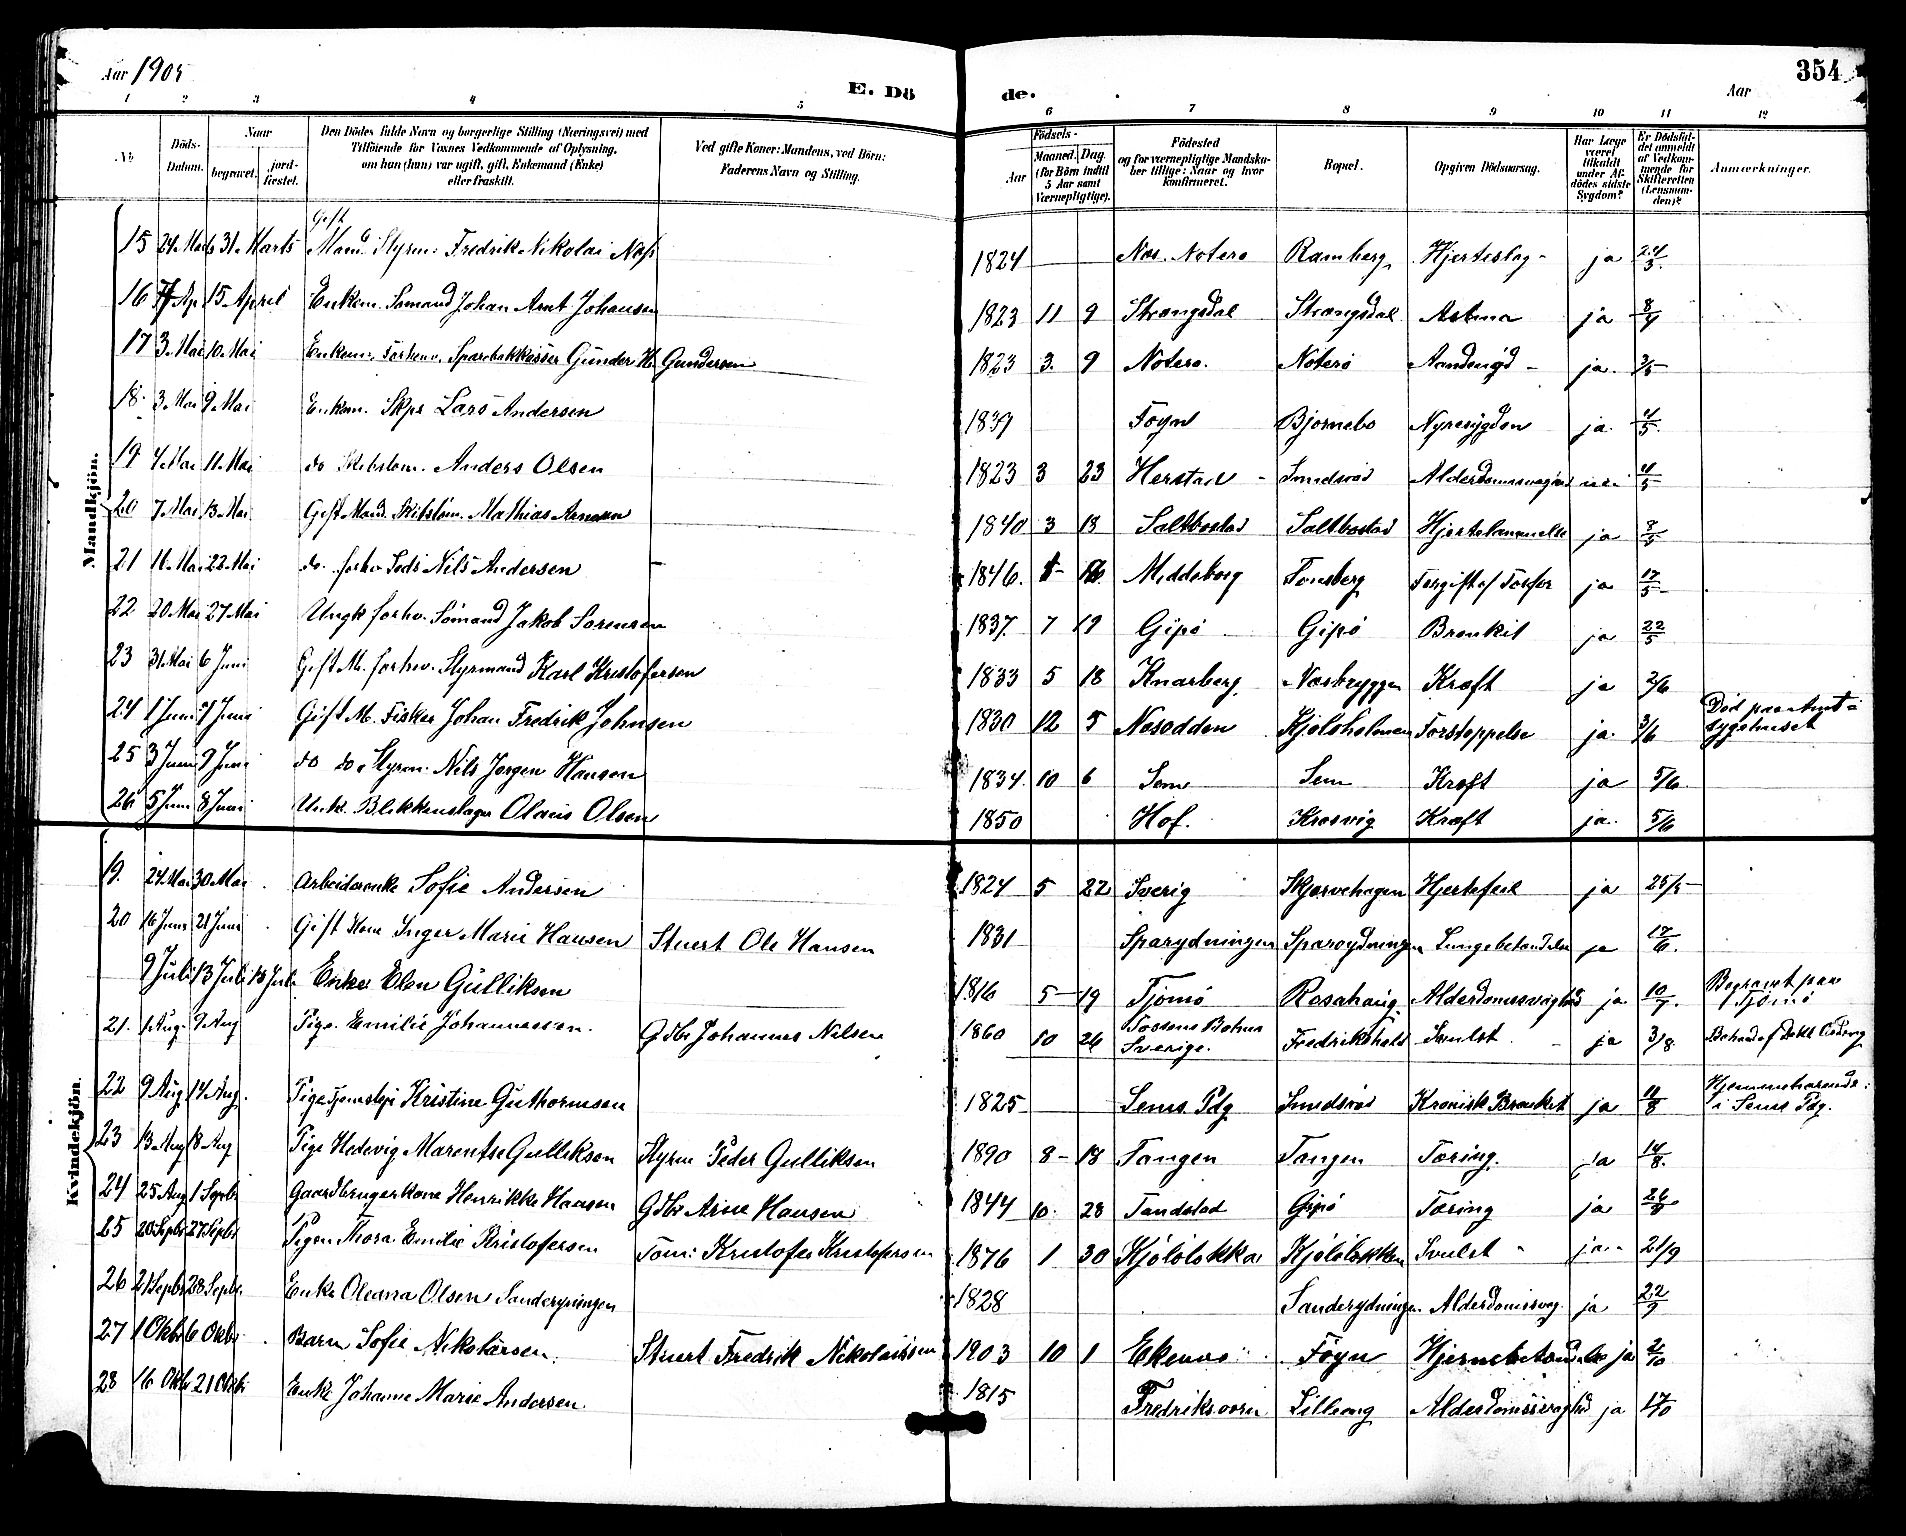 Aar 1905
E. Dö de.
Aar
354
1 2 3 4 5 6 7 8 9 10 11 12
No
Döds-Datum.
Naar
begravet.
jord-fæstet.
Den Dödes fulde Navn og borgerlige Stilling (Næringsvei) med
Tilföiende for Voxnes Vedkommende af Oplysning,
om han (hun) var ugift, gift, Enkemand (Enke)
eller fraskilt.
Ved gifte Koner: Mandens, ved Börn:
Faderens Navn og Stilling.
Födsels-
Aar
Maaned. Dag.
(for Börn indtil 5 Aar samt Værnepligtige).
Födested
og for værnepligtige Mandskaber tillige: Naar og hvor konfirmeret.
Bopæl.
Opgiven Dödsaarsag.
Har Læge været tilkaldt under Afdödes sidste Sygdom?
Er Dödsfaldet anmeldt af Vedkommende for Skifteretten (Lensmanden)?
Anmærkninger.
Mandkjön.
Gift
15 24. Mar 31. Marts Mand Styrm. Fredrik Nikolai Næss 1824 Næs. Notero Ramberg Hjerteslag ja 24/3
16 Ap 15 April Enkem. Sømand Johan Arnt Johansen 1823 11 9 Strængsdal Strængsdal Astma ja 8/4
17 3. Mai 10. Mai Enkem. Forhenv. Sparebakkasser Gunder H. Gundersen 1823 3. 9 Notero. Noterö ja. 3/5
18. 3. Mai 9. Mai Enkem. Skps Lars Andersen 1839 Föyn Bjornebo Nyresygdom ja. 4/5
19 4. Mai 11. Mai do Skibstøm. Anders Olsen 1823 3 23 Herstad Smidsrød Alderdomssvaghed nei 4/5
20 7. Mai 13. Mai Gift Mand. Skibstøm. Mathias Arnesen 1840 3 13 Saltbostad Saltbostad Hjertelammelse ja 8/5
21 Mai 22. Mai do. forhv. Nils Andersen 1846. Middelborg Tonsberg Forgift af Fosfor ja 17/5
22 20. Mai 27. Mai Ungk. forhv. Sömand Jakob Sorensen 1837. 7 19 Gipö Gipö Bronkit ja 22/5
23 31. Mai 6 Juni Gift M. forhv. Styrmand Karl Kristofersen 1833 5 18 Knarberg Næsbryggen Kræft ja 2/6
24 1 Juni 7 Juni Gift M. Fisker Johan Fredrik Johnsen 1830 12 5 Nesodden Kjolsholmen Forstoppelse ja. 3/6 Död paa Amt-sygehuset
25 3 Juni 9 Juni do do Styrm. Nils Jorgen Hansen 1834. 10 6 Sem Sem Kræft ja 5/6
26 5 Juni 8 Juni Unk. Blikkenslager Olaus Olsen 1850 Hof. Krosvig Kræft ja. 5/6
Kvindekjön.
19. 24. Mai 30 Mai Arbeiderenke Sofie Andersen 1824 5 22 Sverig Skjærvehagen Hjertefeil ja 25/5
20 16 Juni 21 Juni Gift Kone Inger Marie Hansen Stuert Ole Hansen 1831 Sparydningen Sparydningen Lungebetændelse ja 17/6.
9 Juli 13 Juli 13 Juli Enke Elen Gulliksen 1816 5 19 Tjomö Rosahaug Alderdomssvaghed ja 10/7. Begravet paa Tjömö
21. 1 Aug. 9 Aug Pige. Emilie Johannessen. Gdbr Johannes Nilsen 1860 10 26 Fossens Bohus Sverige. Fredrikshald Svulst ja 3/8
22 9 Aug 14 Aug. Pige Kristine Guthormsen 1825 Sems Pdg Smidsrød Kronisk Bronkit ja 11/8 Hjemmehørende i Sems Pdg.
23 13 Aug 18 Aug Pige Hedevig Marentse Gulliksen Styrm Peder Gulliksen 1890 8 18 Tangen Tangen Tæring. ja 14/8.
24 25 Aug 1 Septbr Gaardbrugerkone Henrikke Hansen Gdbr Arne Hansen 1844 10. 28 Tandstad Gipö Tæring ja
25 20 Septbr 27 Septbr Pigen Thora Emilie Kristofersen Tom: Kristofer Kristofersen 1876 1 30 Kjölölokka Kjölölokken Svulst ja 21/9
26 21 Septbr 28 Septbr. Enke Oleana Olsen Sanderydningen 1828 Sanderydningen Alderdomssvag. ja 22/9
27 1 Oktbr 6 Oktbr. Barn Sofie Nikolaisen. Stuert Fredrik Nikolaissen 1903 10 1 Ekenes Föyn Hjernebetændelse ja 2/10
28 16 Oktbr 21 Oktbr Enke Johanne Marie Andersen. 1815 Fredriksværn Lilleong Alderdomssvaghed ja 17/10